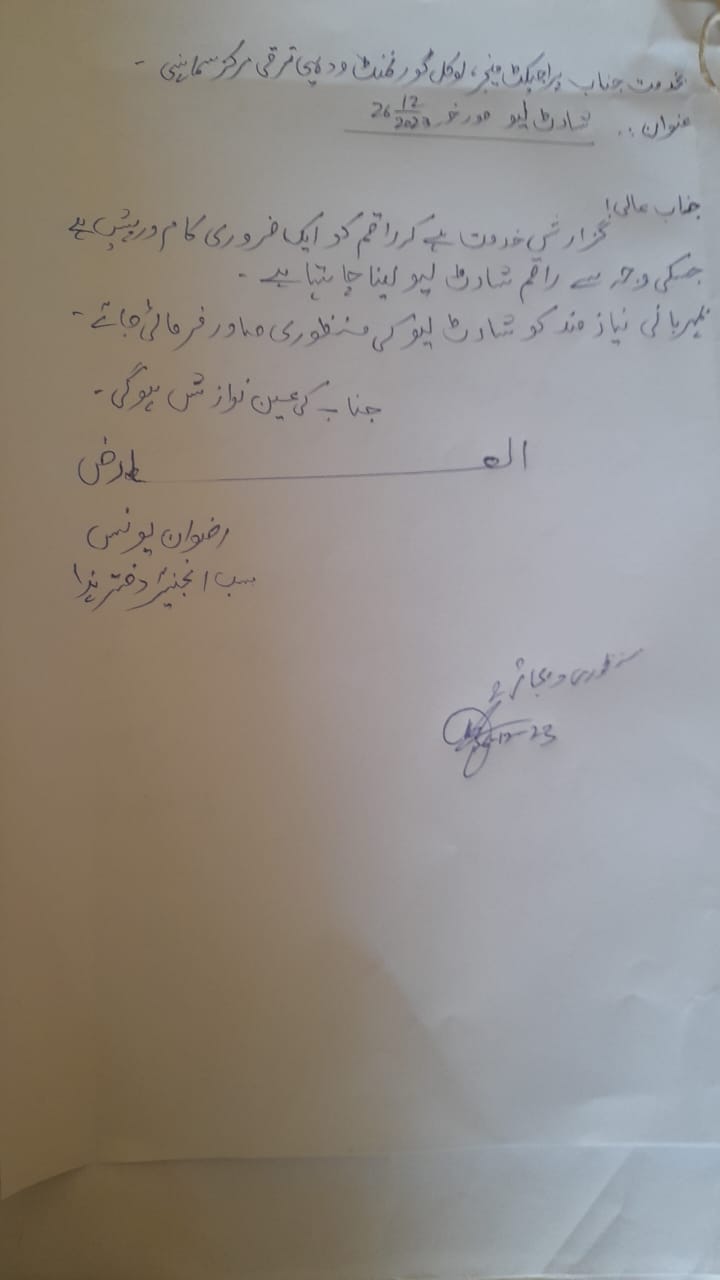 بخدمت جناب پراجیکٹ منیجر، لوکل گورنمنٹ ودیہی ترقی مرکز سماہنی -
عنوان :. شارٹ لیو مورخہ 26 12/2023
جناب عالی!
گزارش خدمت ہے کہ راقم کو ایک ضروری کام درپیش ہے
جسکی وجہ سے راقم شارٹ لیو لینا چاہتا ہے -
بمہربانی نیاز مند کو شارٹ لیو کی منظوری صادر فرمائی جائے -
جناب کی عین نوازش ہوگی -
العارض
رضوان یونس
سب انجنیئر دفتر ہذا
منظوری دی جاتی ہے
26-12-23